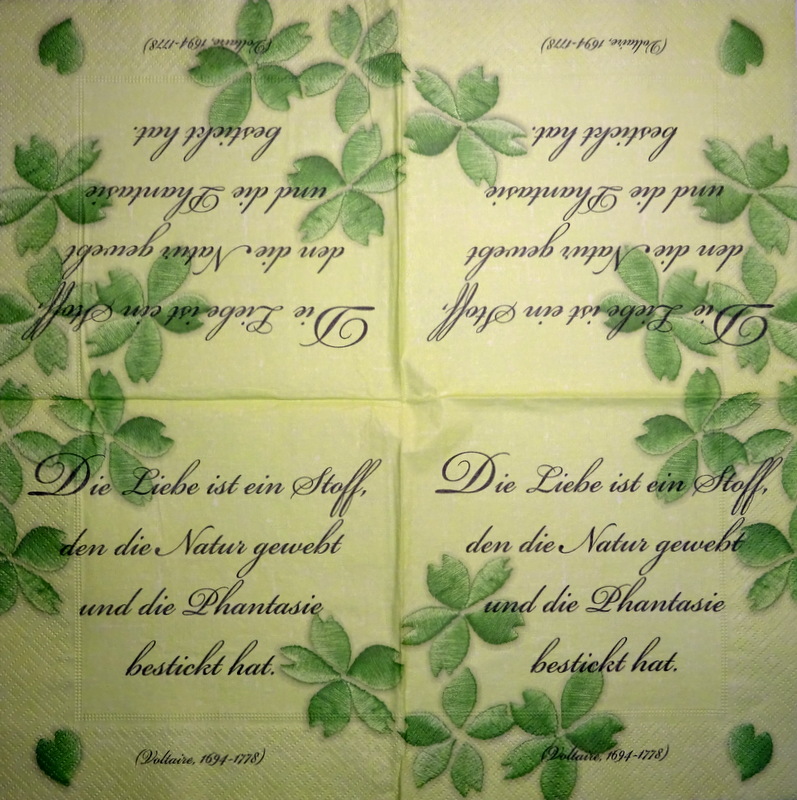 (Voltaire, 1694-1778)
bestickt hat.
und die Phantasie
den die Natur gewebt
Die Liebe ist ein Stoff,
(Voltaire, 1694-1778)
bestickt hat.
und die Phantasie
den die Natur gewebt
Die Liebe ist ein Stoff,
Die Liebe ist ein Stoff,
den die Natur gewebt
und die Phantasie
bestickt hat.
(Voltaire, 1694-1778)
Die Liebe ist ein Stoff,
den die Natur gewebt
und die Phantasie
bestickt hat.
(Voltaire, 1694-1778)